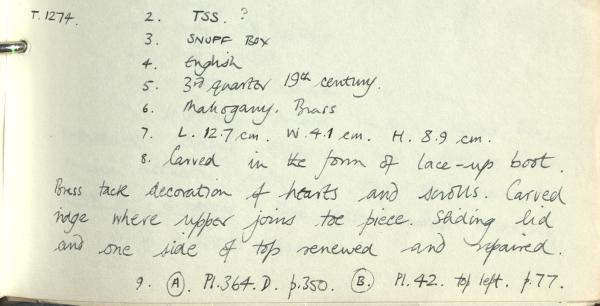 T.1274. 2. TSS. ?
3. SNUFF BOX
4. English
5. 3rd quarter 19th century.
6. Mahogany. Brass
7. L. 12.7 cm. W. 4.1 cm. H. 8.9 cm.
8. Carved in the form of lace-up boot.
Brass tack decoration of hearts and scrolls. Carved
ridge where upper joins toe piece. Sliding lid
and one side of top renewed and repaired.
9. (A). Pl. 364. D. p.350. (B). Pl. 42. top left. p.77.